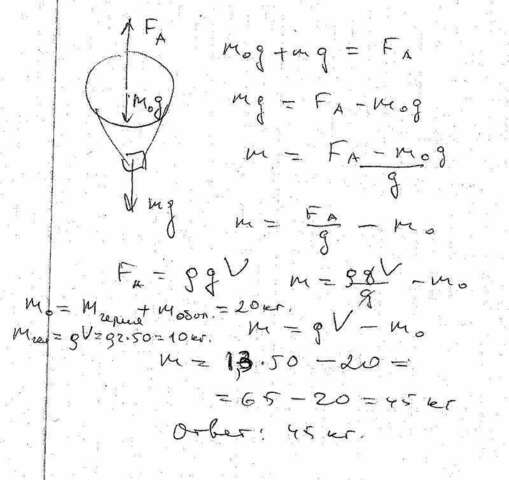 F_A
m₀g
mg
m₀g + mg = F_A
mg = F_A − m₀g
m = (F_A − m₀g)/g
m = F_A/g − m₀
F_A = ρgV
m = ρgV/g − m₀
m₀ = m гелия + m обол. = 20 кг.
m гел = ρV = 0,2·50 = 10 кг.
m = ρV − m₀
m = 1,3·50 − 20 =
= 65 − 20 = 45 кг
Ответ: 45 кг.